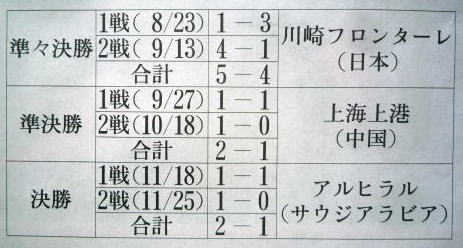 準々決勝 1戦( 8/23) 1－3 川崎フロンターレ
2戦( 9/13) 4－1 (日本)
合計 5－4
準決勝 1戦( 9/27) 1－1 上海上港
2戦(10/18) 1－0 (中国)
合計 2－1
決勝 1戦(11/18) 1－1 アルヒラル
2戦(11/25) 1－0 (サウジアラビア)
合計 2－1